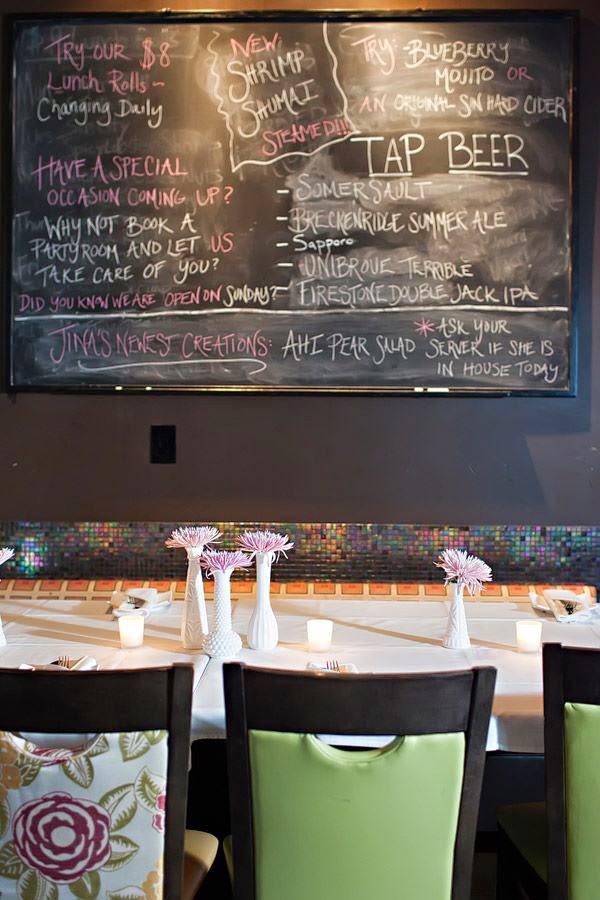 TRY OUR $8
LUNCH ROLLS -
CHANGING DAILY
NEW
SHRIMP
SHUMAI
STEAMED!!!
TRY: BLUEBERRY
MOJITO OR
AN ORIGINAL SIN HARD CIDER
TAP BEER
- SOMERSAULT
- BRECKENRIDGE SUMMER ALE
- Sapporo
- UNIBROUE TERRIBLE
- FIRESTONE DOUBLE JACK IPA
HAVE A SPECIAL
OCCASION COMING UP?
WHY NOT BOOK A
PARTY ROOM AND LET US
TAKE CARE OF YOU?
DID YOU KNOW WE ARE OPEN ON SUNDAY?
JINA'S NEWEST CREATIONS: AHI PEAR SALAD
*ASK YOUR
SERVER IF SHE IS
IN HOUSE TODAY